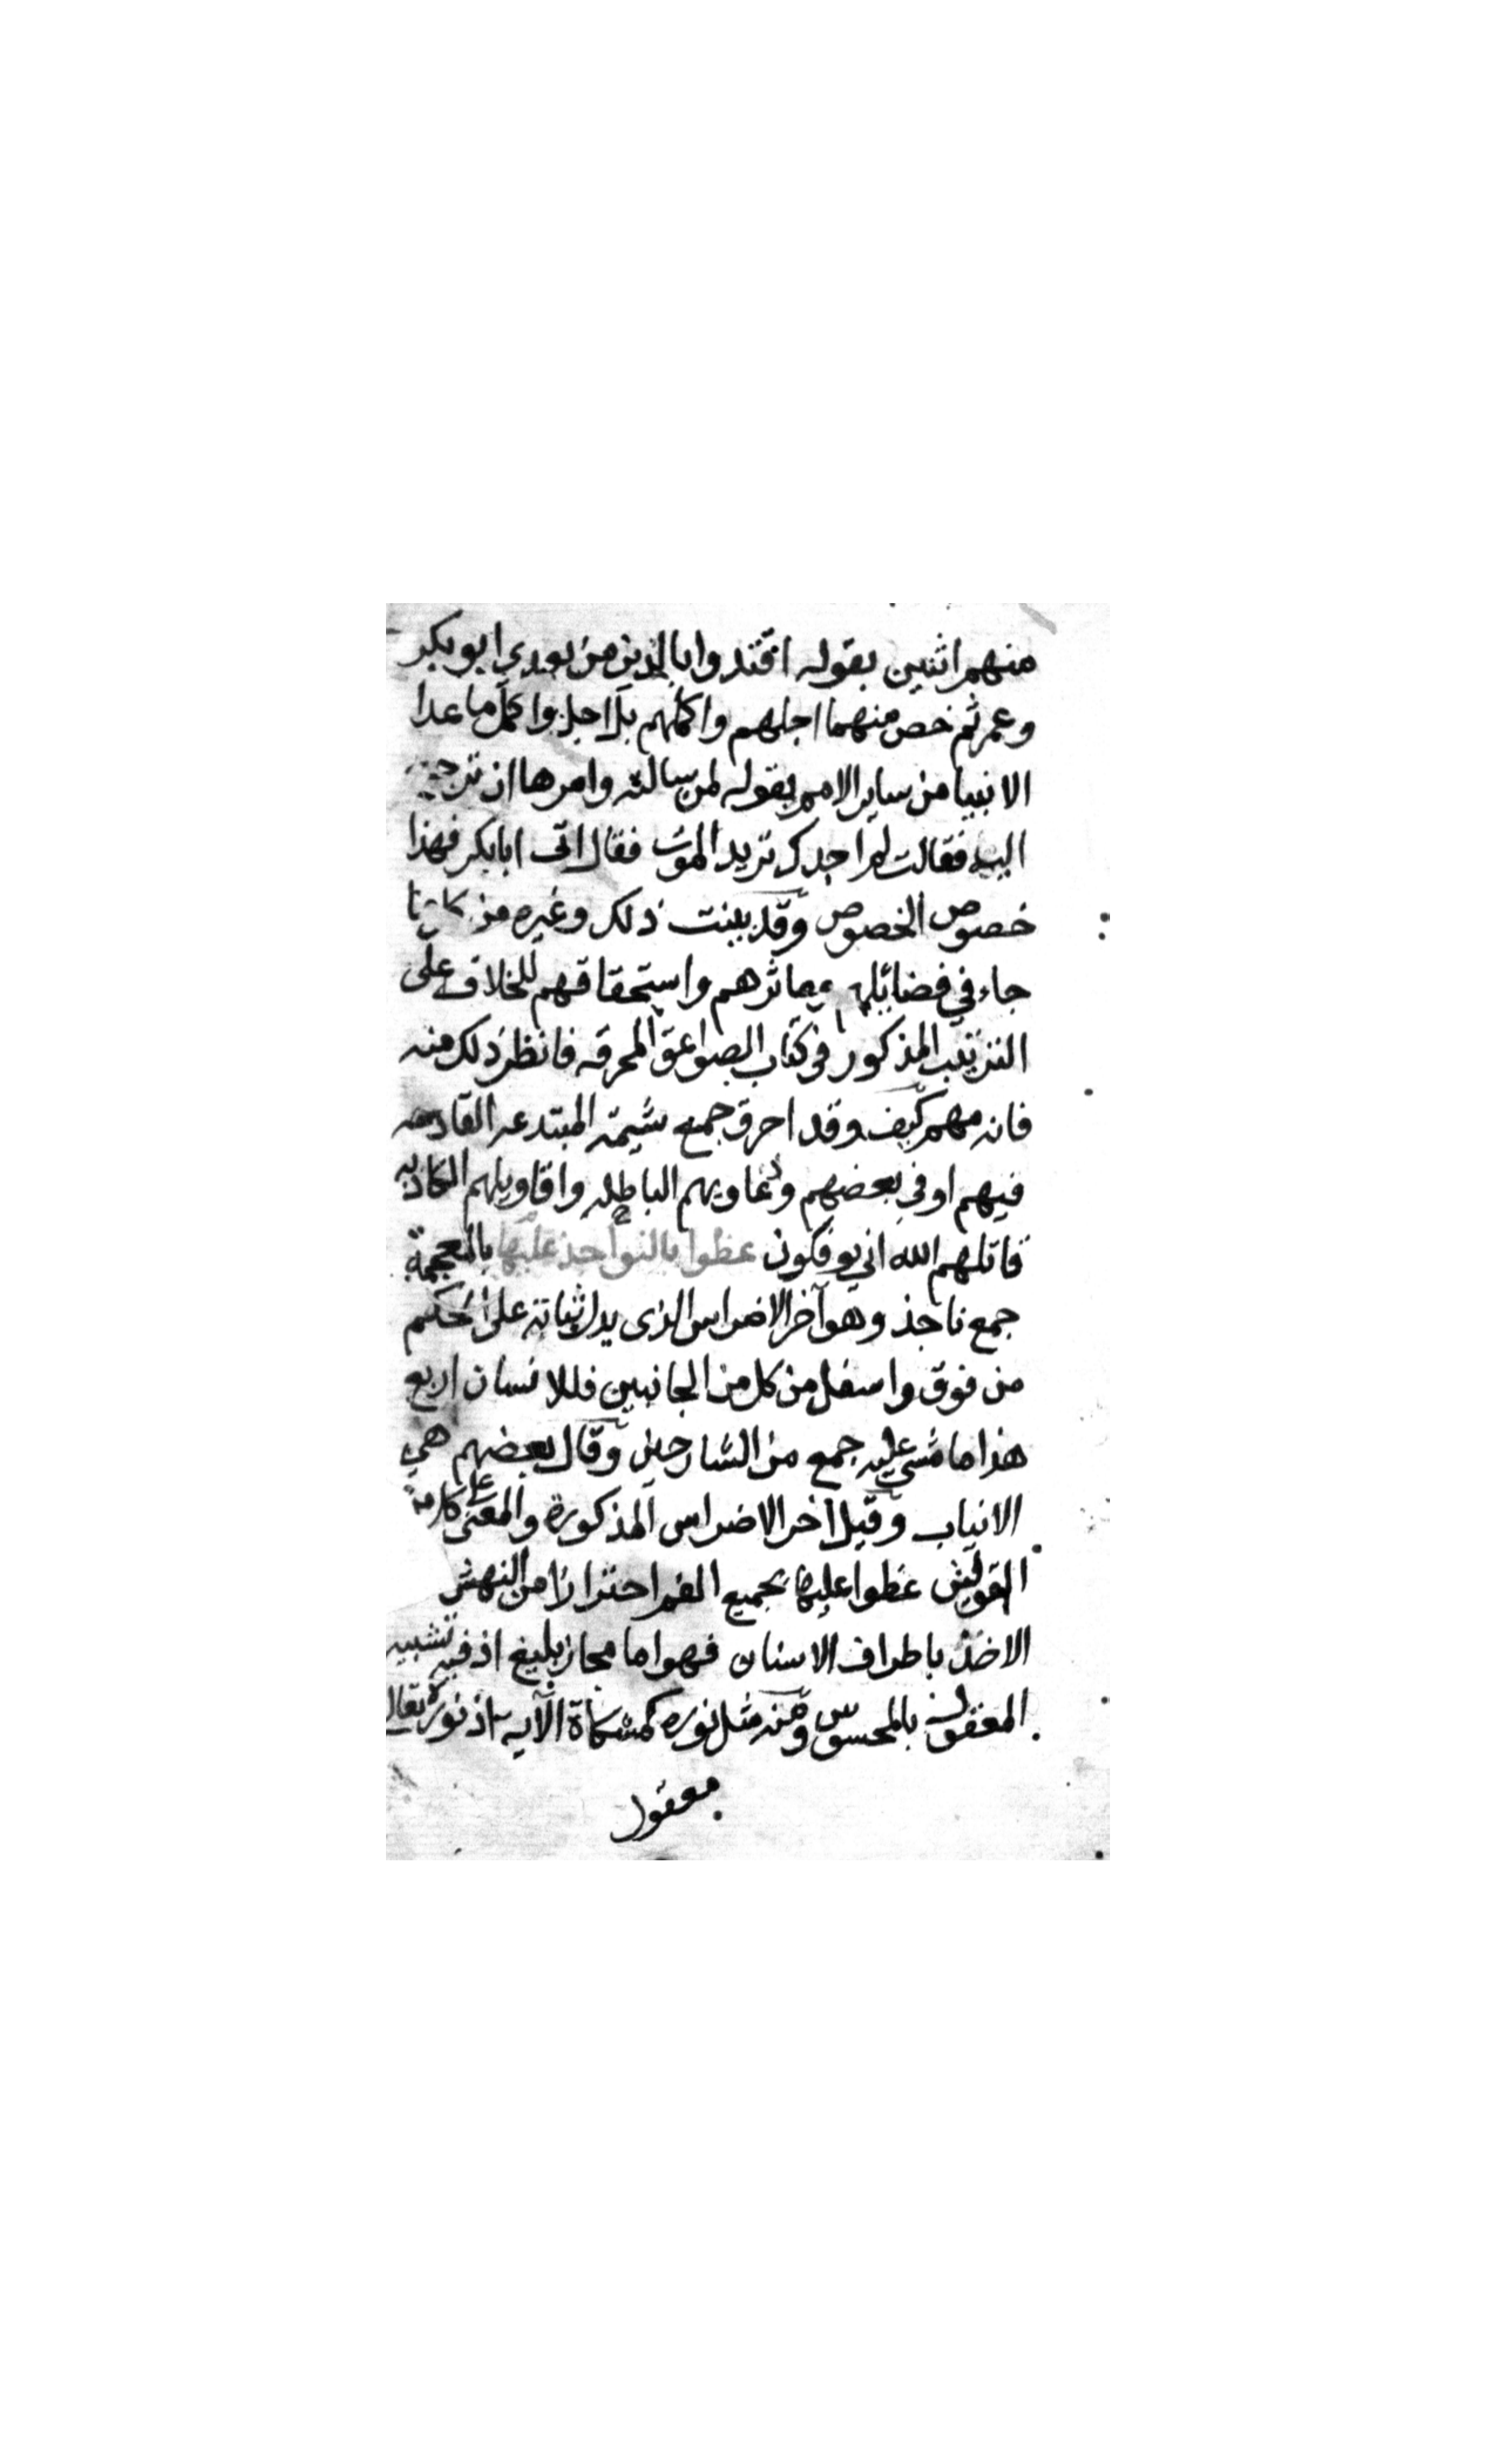 منهم اثنين بقوله اقتدوا بالذين من بعدي ابو بكر
وعمر ثم خص منهما اجلهم واكملهم بل اجل واكمل ما عدا
الانبيا من ساير الامم بقوله لمن سالته وامرها ان ترجع
اليه فقالت لم اجدك تريد الموت فقال اتى ابابكر فهذا
خصوص الخصوص وقد بينت ذلك وغيره من
جاء في فضائلهم ومماثرهم واستحقاقهم للخلافه على
الترتيب المذكور في كتاب الصواعق المحرقه فانظر ذلك منه
فانه مهم كيف وقد احرق جميع شيمة المبتدعه القادحه
فيهم او في بعضهم ودعاويهم الباطله واقاويلهم الكاذبه
قاتلهم الله اني يوفكون عظوا بالنواجذ عليها بالمعجمة
جمع ناجذ وهو آخر الاضراس الذى يدل نباته على الحكم
من فوق واسفل من كل من الجانبين فللانسان اربع
هذا ما مشي عليه جمع من الشارحين وقال بعضهم هي
الانياب وقيل اخر الاضراس المذكورة والمعنى على كل من
القولين عظوا عليها بجميع الفم احترازا من النهش
الاخذ باطراف الاسنان فهو اما مجاز بليغ اذ فيه تشبيه
المعقول بالمحسوس ومنه مثل نوره كمشكاة الآيه اذ نوره تعالى
معقول